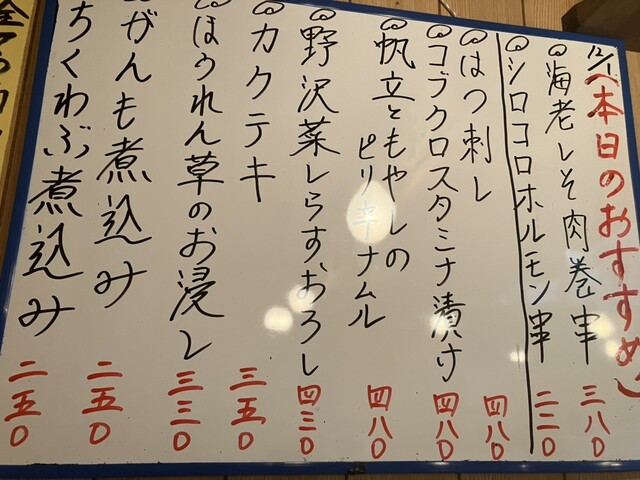 12/1
〈本日のおすすめ〉
海老しそ肉巻串 三八〇
シロコロホルモン串 二二〇
はつ刺し 四八〇
コブクロスタミナ漬け 四八〇
帆立ともやしの
ピリ辛ナムル 四八〇
野沢菜しらすおろし 四三〇
カクテキ 三五〇
ほうれん草のお浸し 三三〇
がんも煮込み 二五〇
ちくわぶ煮込み 二五〇